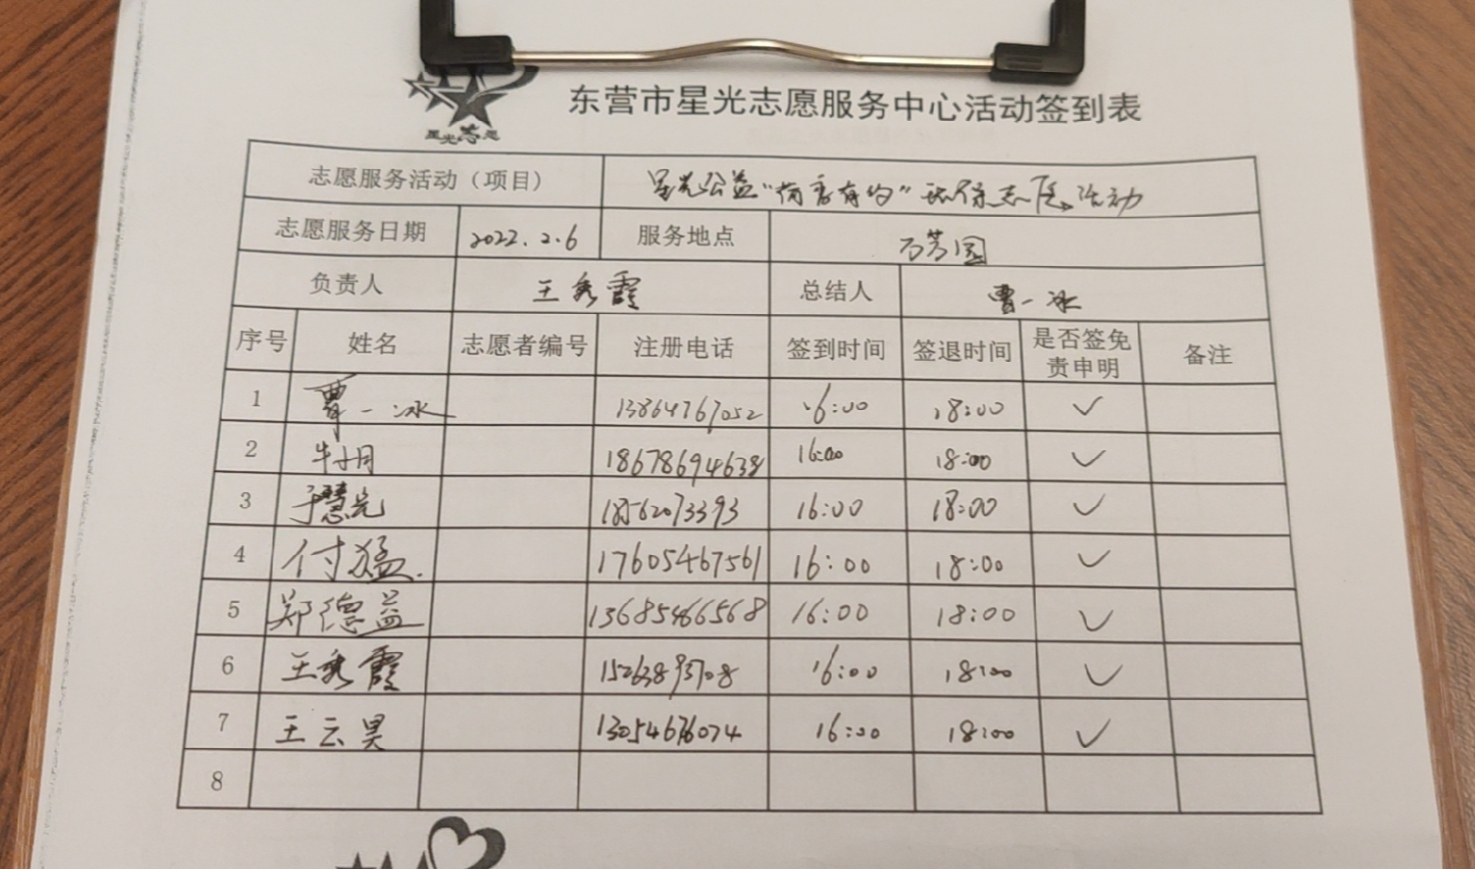 星光志愿
东营市星光志愿服务中心活动签到表
志愿服务活动（项目） 星光公益“有害有约”环保志愿活动
志愿服务日期 2022.2.6 服务地点 万芳园
负责人 王秀霞 总结人 曹一冰
序号 姓名 志愿者编号 注册电话 签到时间 签退时间 是否签免责申明 备注
1 曹一冰 13864767052 16:00 18:00 ✓
2 牛月 18678694638 16:00 18:00 ✓
3 于慧光 18562073393 16:00 18:00 ✓
4 付猛. 17605467561 16:00 18:00 ✓
5 郑德益 13685466568 16:00 18:00 ✓
6 王秀霞 15263893708 16:00 18:00 ✓
7 王云昊 13054676074 16:00 18:00 ✓
8